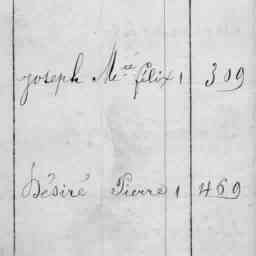 joseph Mce félix 1 309
Désiré Pierre 1 469